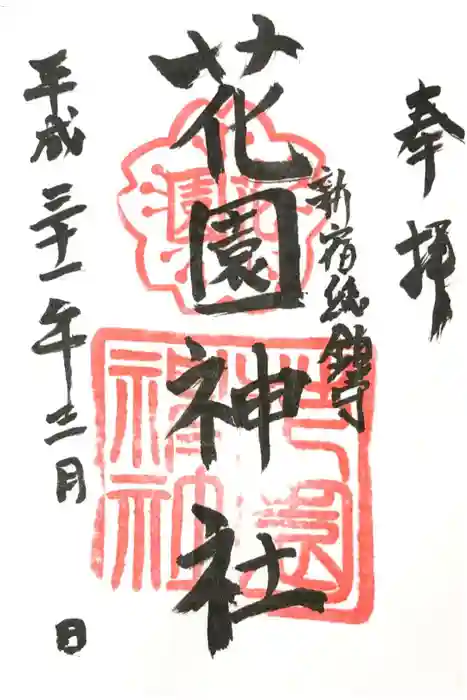 奉拝
新宿総鎮守
花園神社
平成三十一年二月 日
花園
花園神社